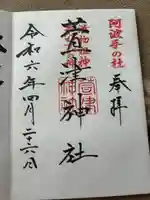 阿波手の杜
奉拝
萱津神社
令和六年四月二十六日